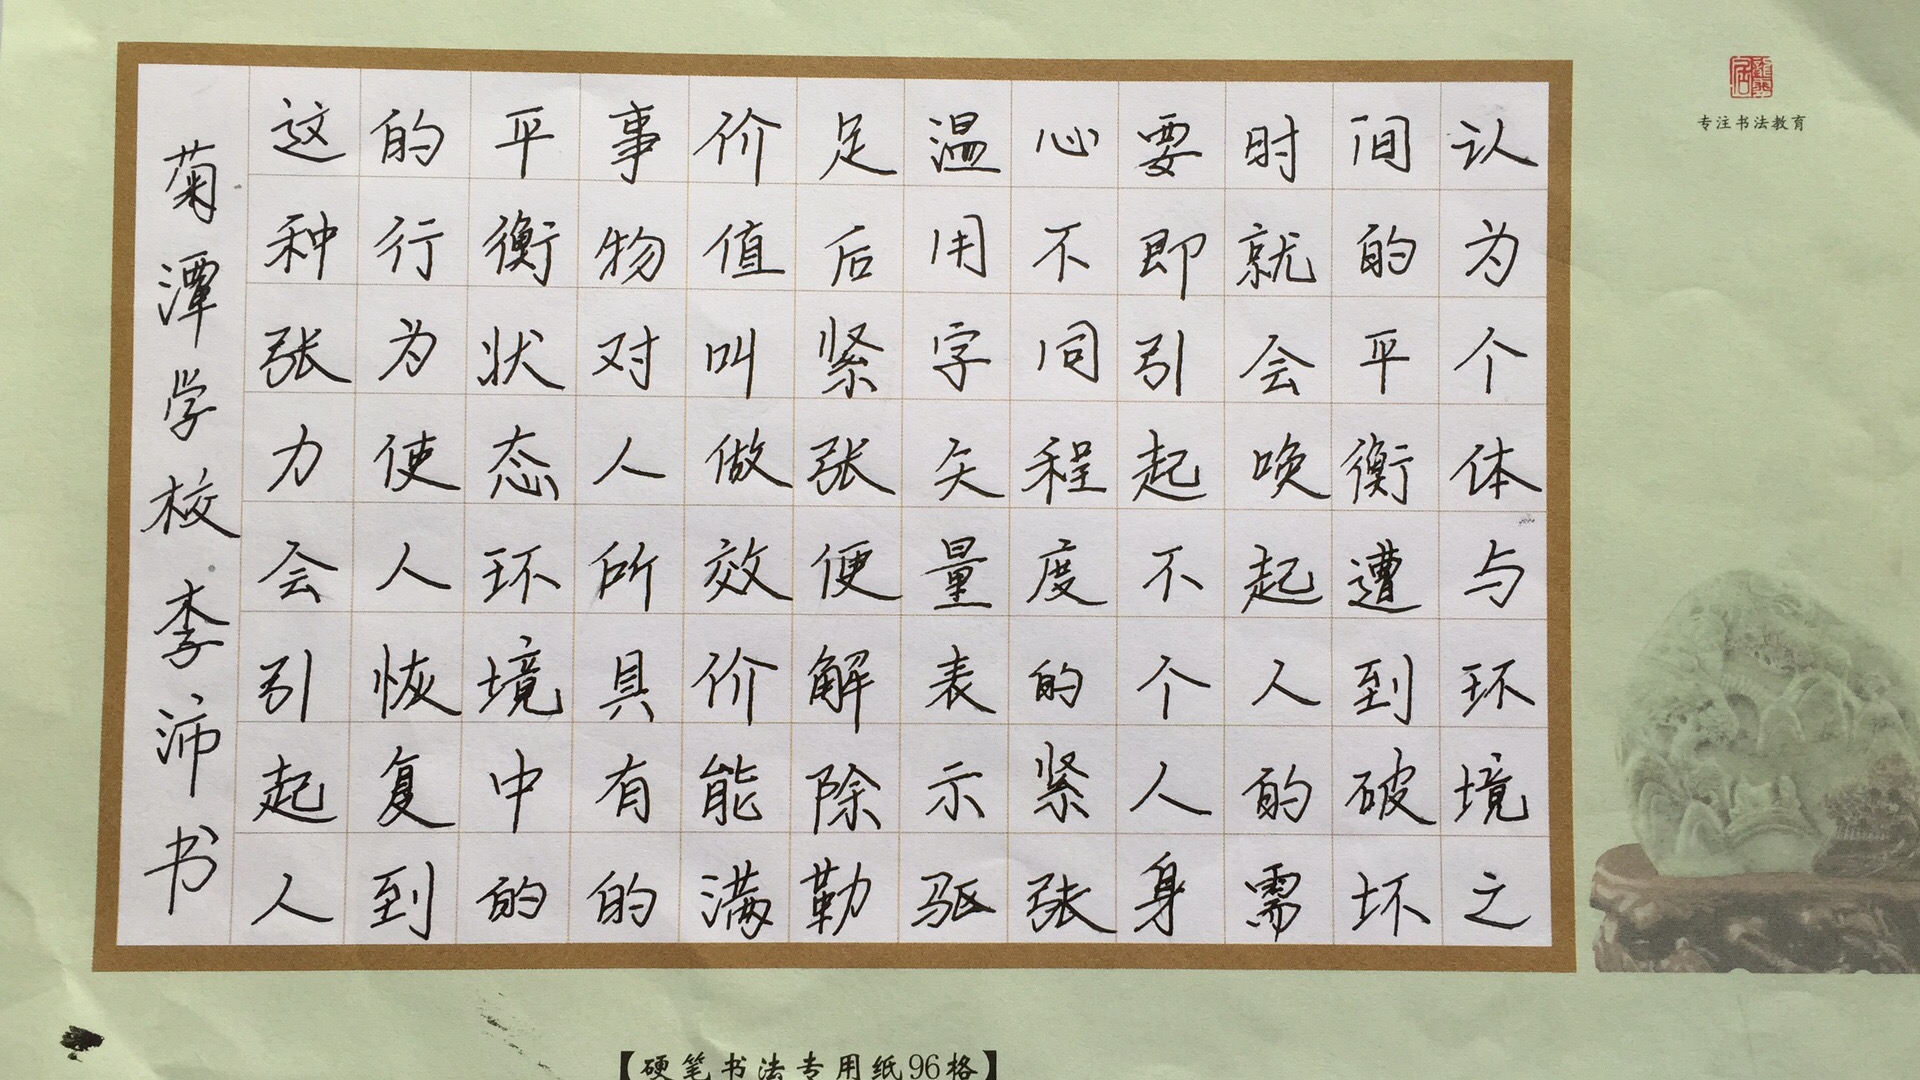 认为个体与环境之
间的平衡遭到破坏
时就会唤起人的需
要即引起不个人身
心不同程度的紧张
温用字矢量表示驱
足后紧张便解除勒
价值叫做效价能满
事物对人所具有的
平衡状态环境中的
的行为使人恢复到
这种张力会引起人
菊潭学校李沛书
专注书法教育
【硬笔书法专用纸96格】